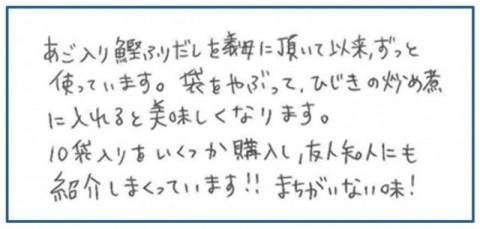 あご入り鰹ふりだしを義母に頂いて以来、ずっと
使っています。袋をやぶって、ひじきの炒め煮
に入れると美味しくなります。
10袋入りをいくつか購入し、友人知人にも
紹介しまくっています!! まちがいない味!